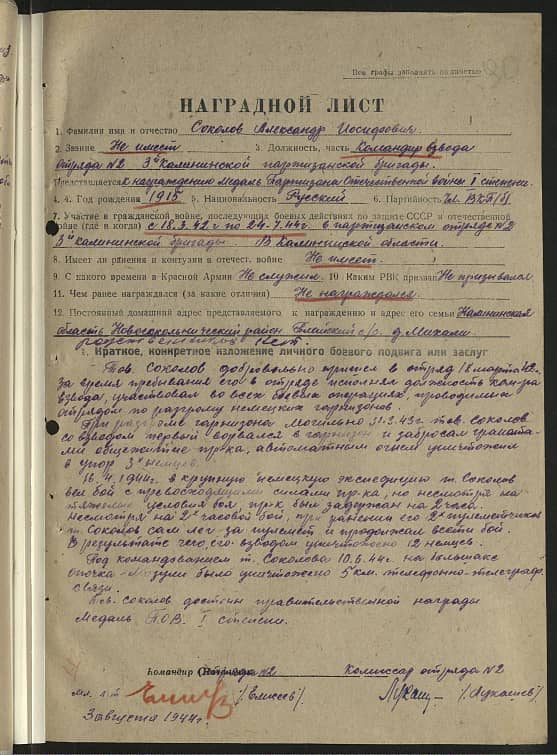 Все графы заполнять полностью
НАГРАДНОЙ ЛИСТ
1. Фамилия имя и отчество Соколов Александр Иосифович
2. Звание Не имеет 3. Должность, часть Командир взвода
отряда №2 3й Калининской партизанской бригады.
Представляется к награждению Медаль Партизана Отечественной войны I степени.
4. Год рождения 1915 5. Национальность Русский 6. Партийность Чл. ВКП(б)
7. Участие в гражданской войне, последующих боевых действиях по защите СССР и отечественной
войне (где и когда) с 18.3.42 г по 24-7.44г. в партизанском отряде №2
3й Калининской бригады. В Калининской области.
8. Имеет ли ранения и контузии в отечест. войне Не имеет.
9. С какого времени в Красной Армии Не служил. 10. Каким РВК призван Не призывался
11. Чем ранее награждался (за какие отличия) Не награждался.
12. Постоянный домашний адрес представляемого к награждению и адрес его семьи Калининская
область Новосокольнический район с/с. д.
родственников нет.
1. Краткое, конкретное изложение личного боевого подвига или заслуг
Тов. Соколов добровольно пришел в отряд 18 марта 42г.
За время пребывания его в отряде исполнял должность ком-ра
взвода, участвовал во всех боевых операциях, проводимых
отрядом по разгрому немецких гарнизонов.
При разгроме гарнизона Могильно 31.3.43г. тов. Соколов
со взводом первый ворвался в гарнизон и забросал граната-
ми общежитие пр-ка, автоматным огнем уничтожил
в упор 3х немцев.
16.4.1944г. в крупную немецкую экспедицию т. Соколов
вел бой с превосходящими силами пр-ка, но несмотря на
тяжелые условия боя, пр-к был задержан на 2 часа.
Несмотря на 2х часовой бой, при ранении его 2х пулеметчиков
т. Соколов сам лег за пулемет и продолжал вести бой
В результате чего, его взводом уничтожено 12 немцев.
Под командованием т. Соколова 10.6.44г. на большаке
Опочка - было уничтожено 5 км. телефонно-телеграф.
связи.
Тов. Соколов достоин правительственной награды
Медаль П.О.В. I степени.
Командир отряда №2 Комиссар отряда №2
мл. л-т /Елисеев/ /Лукашев/
3 августа 1944г.